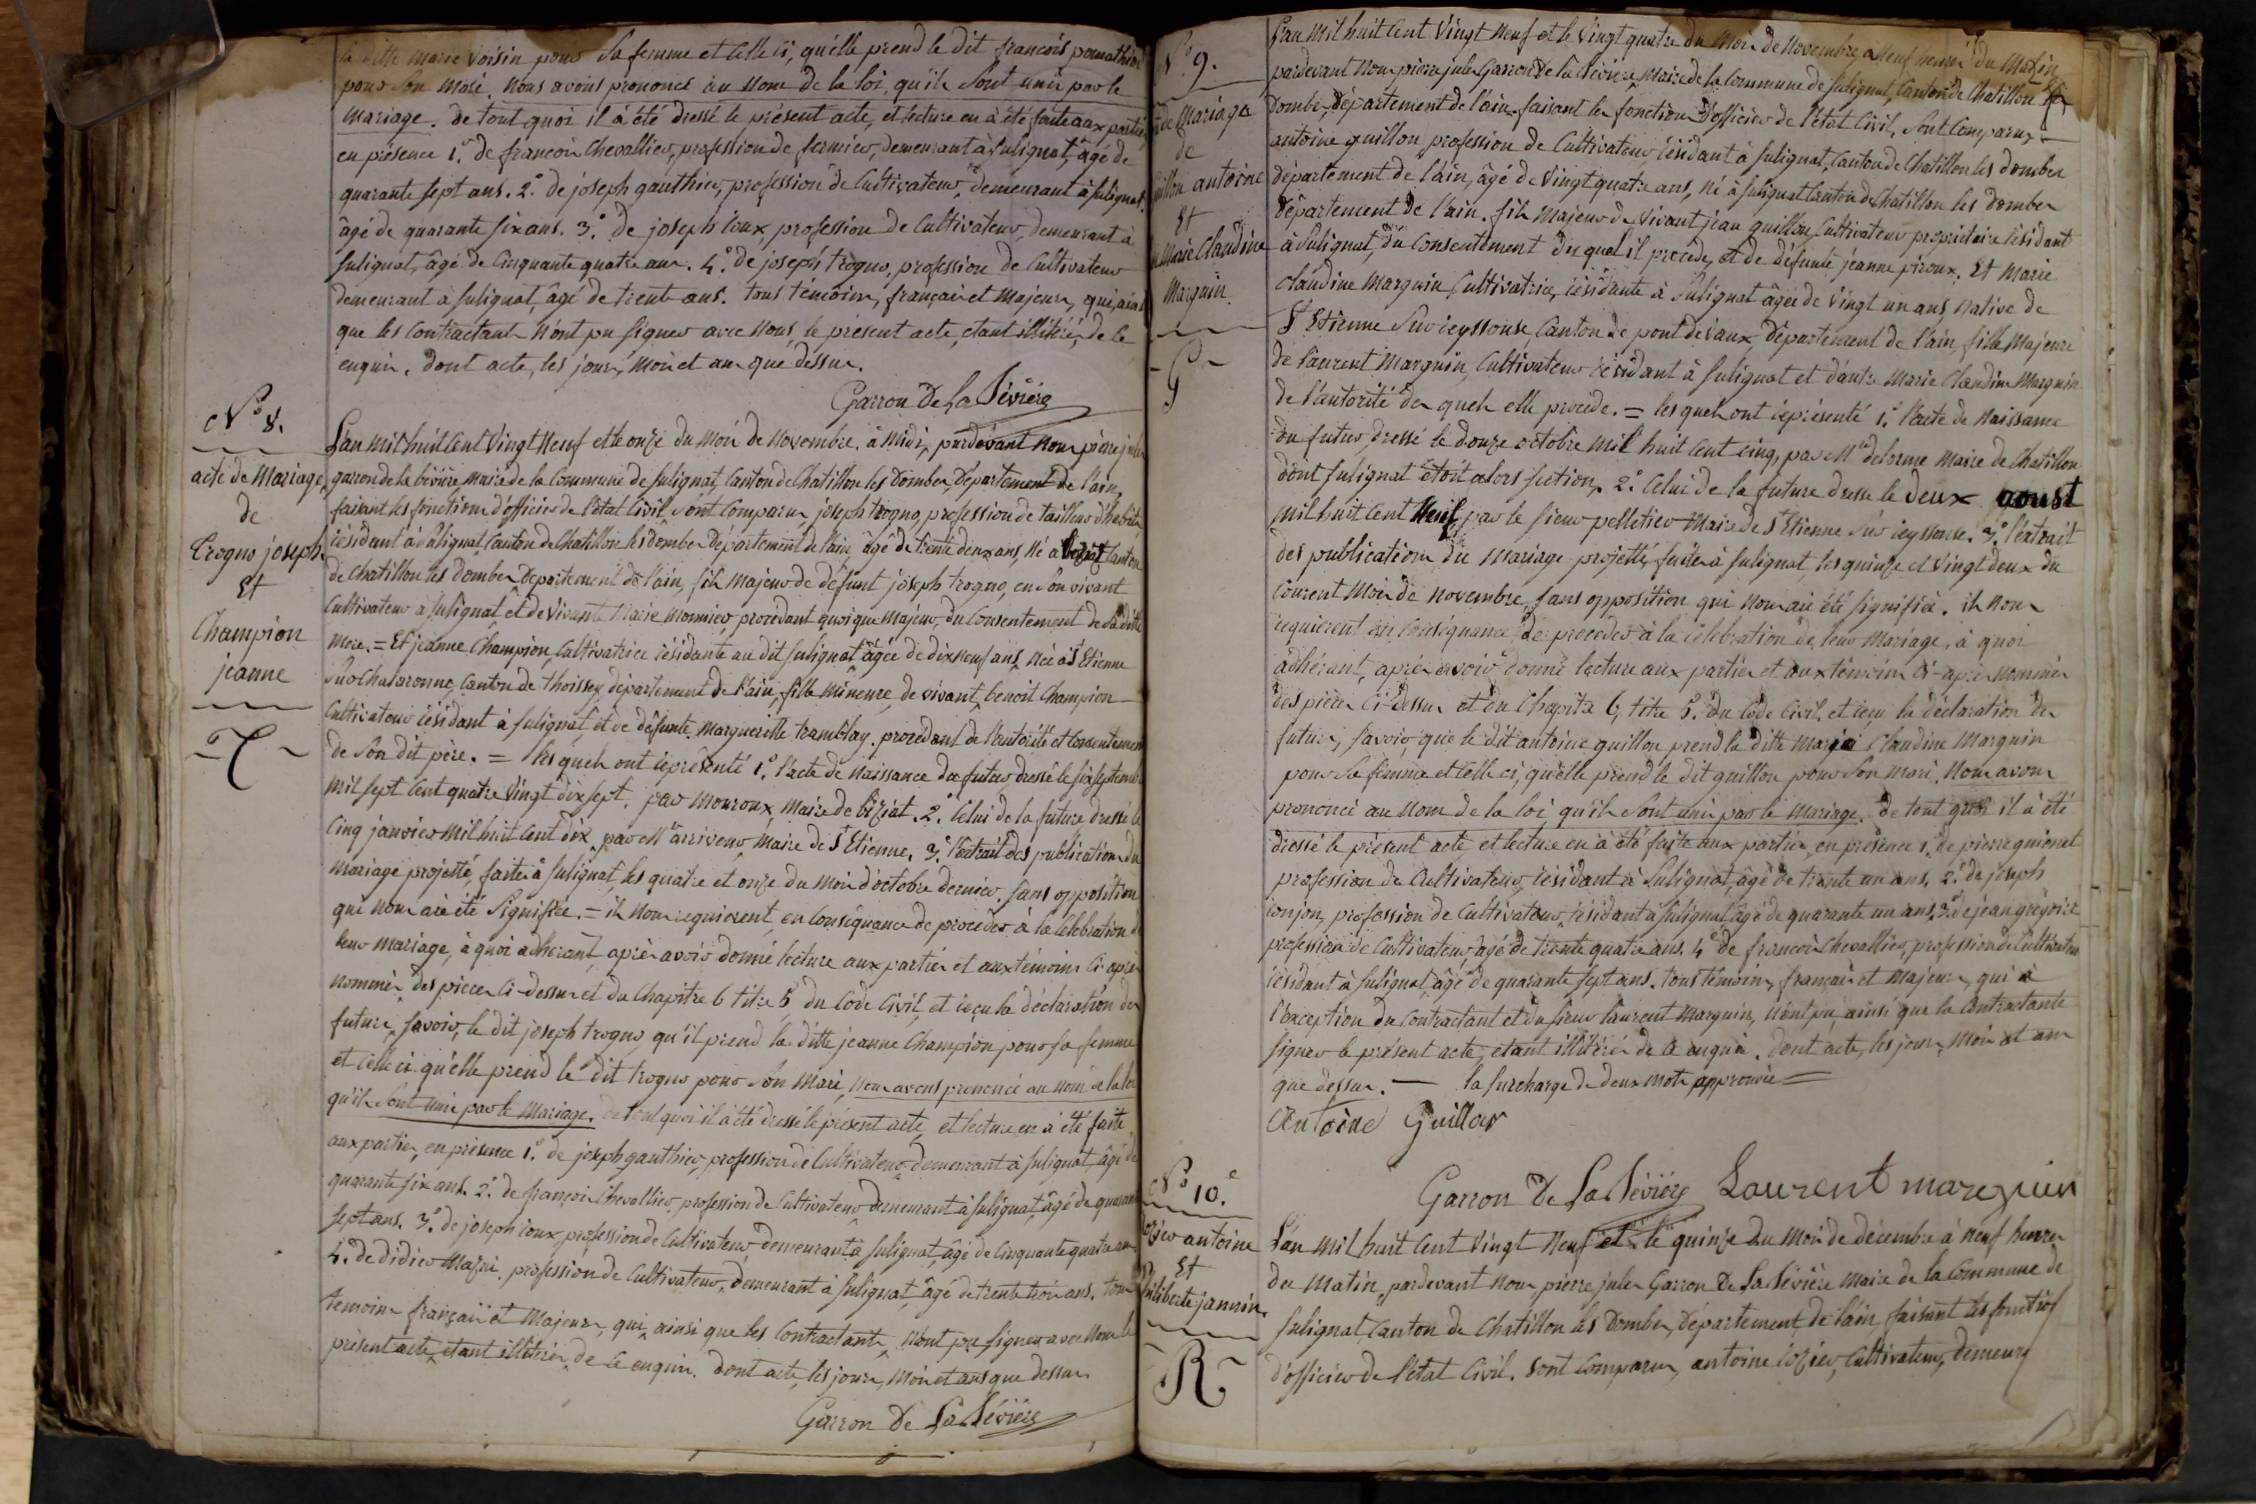 la ditte Marie Voisin pour sa femme et celle ci, qu'elle prend le dit françois
pour son Mari. Nous avons prononcé au Nom de la loi, qu'ils sont unis par le
Mariage. de tout quoi il à été dressé le présent acte, et lecture en à été faite aux parties
en présence 1.° de françois Chevallier, profession de fermier, demeurant à Sulignat, âgé de
quarante sept ans. 2.° de joseph gauthier, profession de Cultivateur, demeurant à Sulignat
âgé de quarante six ans. 3.° de joseph ioux, profession de Cultivateur, demeurant à
Sulignat, âgé de Cinquante quatre ans. 4.° de joseph trogno, profession de Cultivateur
demeurant à Sulignat, âgé de trente ans. tous témoins, français et Majeurs, qui, ainsi
que les Contractants N'ont pu signer avec Nous, le présent acte, étant illitérés, de ce
enquis. dont acte, les jours, Mois et ans que dessus.
Garron De La Bévière
N.° 8.
acte de Mariage
de
Trogno joseph
Et
Champion
jeanne
T
L'an Mil huit Cent Vingt Neuf et le onze du Mois de Novembre. à Midi, pardevant Nous pierre jules
garron de la bévière, Maire de la Commune de Sulignat, Canton de Chatillon les Dombes, Département de l'ain,
faisant les fonctions d'officier de l'état Civil, Sont Comparus, joseph trogno, profession de tailleur d'habits
résidant à Sulignat Canton de Chatillon les dombes département de l'ain, âgé de trente deux ans, Né a biziat Canton
de Chatillon les dombes Département de l'ain, fils Majeur de défunt joseph trogno, en son vivant
Cultivateur à Sulignat, et de Vivante Marie Monnier, procédant quoique Majeur, du Consentement de sa ditte
Mere. = Et jeanne Champion, Cultivatrice résidante au dit Sulignat âgée de dix neuf ans, Née à S.t Etienne
Sur Chalaronne, Canton de thoissey département de l'ain, fille Mineure, de vivant, benoit Champion
Cultivateur résidant à Sulignat, et de défunte Marguerite tramblay. procédant de l'autorité et Consentement
de Son dit père. = lesquels ont représenté 1.° l'acte de Naissance du futur, dressé le six septembre
Mil sept Cent quatre Vingt dix sept, par Mouroux, Maire de biziat. 2.° Celui de la future dressé le
Cinq janvier Mil huit Cent dix par M.r arriveur Maire de S.t Etienne. 3.° l'extrait des publications du
Mariage projetté, faites à Sulignat, les quatre et onze du Mois d'octobre dernier. Sans opposition
qui Nous aie été Signifiée. = ils Nous requierent, en Conséquance de procéder à la Célébration de
leur Mariage, à quoi adhérant, après avoir donné lecture aux parties et aux témoins Ci-après
Nommés, des pieces Ci-dessus et du Chapitre 6 titre 5, du Code Civil, et reçu la déclaration des
futurs, Savoir, le dit joseph trogno, qu'il prend la ditte jeanne Champion pour sa femme
et Celle ci qu'elle prend le dit trogno pour Son Mari, Nous avons prononcé au Nom de la loi
qu'ils Sont unis par le Mariage. De tout quoi il à été dressé le présent acte, et lecture en à été faite
aux parties, en présence 1.° de joseph gauthier, profession de Cultivateur, demeurant à Sulignat, âgé de
quarante six ans. 2.° de françois Chevallier, profession de Cultivateur demeurant à Sulignat, âgé de quarante
sept ans. 3.° de joseph ioux, profession de Cultivateur, demeurant à Sulignat, âgé de Cinquante quatre ans
4.° de didier Maziri, profession de Cultivateur, demeurant à Sulignat, âgé de trente trois ans. tous
témoins français et Majeurs, qui, ainsi que les Contractants, N'ont pu signer avec Nous le
présent acte, étant illitérés, de ce enquis. dont acte, les jours, Mois et ans que dessus
Garron De La Bévière
N.° 9.
de Mariage
de
guillon antoine
Et
Marie Claudine
Marguin.
G
L'an Mil huit Cent Vingt Neuf et le Vingt quatre du Mois de Novembre, a Neuf heures du Matin
pardevant Nous pierre jules Garron De la bévière, Maire de la Commune de Sulignat, Canton de Chatillon les
Dombes, Département de l'ain, faisant les fonctions d'officier de l'état Civil. Sont Comparus,
antoine guillon, profession de Cultivateur, résidant à Sulignat, Canton de Chatillon les dombes
département de l'ain, âgé de Vingt quatre ans, Né à Sulignat Canton de Chatillon les dombes
département de l'ain. fils Majeur de Vivant jean guillon, Cultivateur propriétaire résidant
à Sulignat, du Consentement du quel il procède, et de défunte jeanne piroux. Et Marie
Claudine Marguin Cultivatrice, résidante à Sulignat âgée de Vingt un ans Native de
S.t Etienne Sur reyssouse, Canton de pont de vaux, Département de l'ain, fille Majeure
de laurent Marguin, Cultivateur résidant à Sulignat et d'autre Marie Claudine Marguin
de l'autorité des quels elle procède. = les quels ont représenté 1.° l'acte de Naissance
du futur, dressé le douze octobre Mil huit Cent cinq, par M.r delorme Maire de Chatillon
dont Sulignat étoit alors section. 2.° Celui de la future dressé le deux aoust
Mil huit Cent Neuf, par le sieur pelletier Maire de S.t Etienne Sur reyssouse. 3.° l'extrait
des publications du Mariage projetté, faites à Sulignat, les quinze et Vingt deux du
Courent Mois de Novembre, sans opposition qui Nous aie été signifiée. ils Nous
requierent en Conséquance, de proceder à la Célébration de leur Mariage, à quoi
adhérant, après avoir donné lecture aux parties et aux témoins Ci-après Nommés
des pieces Ci-dessus et du Chapitre 6, titre 5. du Code Civil, et reçu la déclaration des
futurs, Savoir, que le dit antoine guillon prend la ditte Marie Claudine Marguin
pour sa femme et Celle ci, qu'elle prend le dit guillon pour Son Mari. Nous avons
prononcé au Nom de la loi, qu'ils Sont unis par le Mariage. de tout quoi il à été
dressé le présent acte, et lecture en à été faite aux parties, en présence 1.° de pierre guienet
profession de Cultivateur, résidant à Sulignat, âgé de trente un ans. 2.° de joseph
ionjon, profession de Cultivateur, résidant à Sulignat âgé de quarante un ans. 3.° de jean grégoire
profession de Cultivateur, âgé de trente quatre ans. 4.° de françois Chevallier, profession de Cultivateur
résidant à Sulignat, âgé de quarante sept ans. tous témoins, français et Majeurs, qui à
l'exception du Contractant et du sieur laurent Marguin, N'ont pu, ainsi que la Contractante
signer le présent acte, étant illitérés de ce enquis. dont acte, les jours, Mois et ans
que dessus. — la surcharge de deux Mots approuvée =
Antoine Guillon
Garron De La Bévière Laurent marguin
N.° 10.e
antoine
Et
philiberte jannin
R
L'an Mil huit Cent Vingt Neuf et le quinze du Mois de décembre à Neuf heures
du Matin, pardevant Nous, pierre jules Garron De La Bévière Maire de la Commune de
Sulignat, Canton de Chatillon les Dombes, Département de l'ain, faisant les fonctions
d'officier de l'état Civil. Sont Comparus, antoine Cultivateur, demeurt